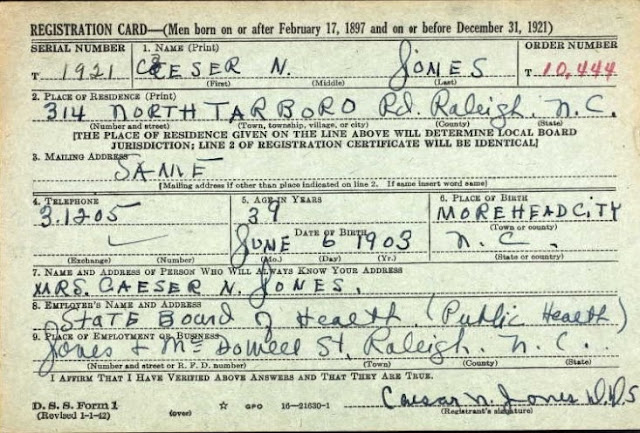 REGISTRATION CARD—(Men born on or after February 17, 1897 and on or before December 31, 1921)
SERIAL NUMBER 1. NAME (Print) ORDER NUMBER
T 1921 CAESER N. JONES T 10,444
(First) (Middle) (Last)
2. PLACE OF RESIDENCE (Print)
314 NORTH TARBORO Rd. Raleigh, N.C.
(Number and street) (Town, township, village, or city) (County) (State)
[THE PLACE OF RESIDENCE GIVEN ON THE LINE ABOVE WILL DETERMINE LOCAL BOARD
JURISDICTION; LINE 2 OF REGISTRATION CERTIFICATE WILL BE IDENTICAL]
3. MAILING ADDRESS
SAME
[Mailing address if other than place indicated on line 2. If same insert word same]
4. TELEPHONE 5. AGE IN YEARS 6. PLACE OF BIRTH
3.1205 39 MOREHEAD CITY
DATE OF BIRTH (Town or county)
JUNE 6 1903 N.C.
(Exchange) (Number) (Mo.) (Day) (Yr.) (State or country)
7. NAME AND ADDRESS OF PERSON WHO WILL ALWAYS KNOW YOUR ADDRESS
MRS. CAESER N. JONES.
8. EMPLOYER'S NAME AND ADDRESS
STATE BOARD of Health (Public Health)
9. PLACE OF EMPLOYMENT OR BUSINESS
Jones + McDowell St. Raleigh. N.C.
(Number and street or R. F. D. number) (Town) (County) (State)
I AFFIRM THAT I HAVE VERIFIED ABOVE ANSWERS AND THAT THEY ARE TRUE.
D. S. S. Form 1 Caesar N. Jones D.D.S
(Revised 1-1-42) (over) ☆ GPO 16—21630-1 (Registrant's signature)